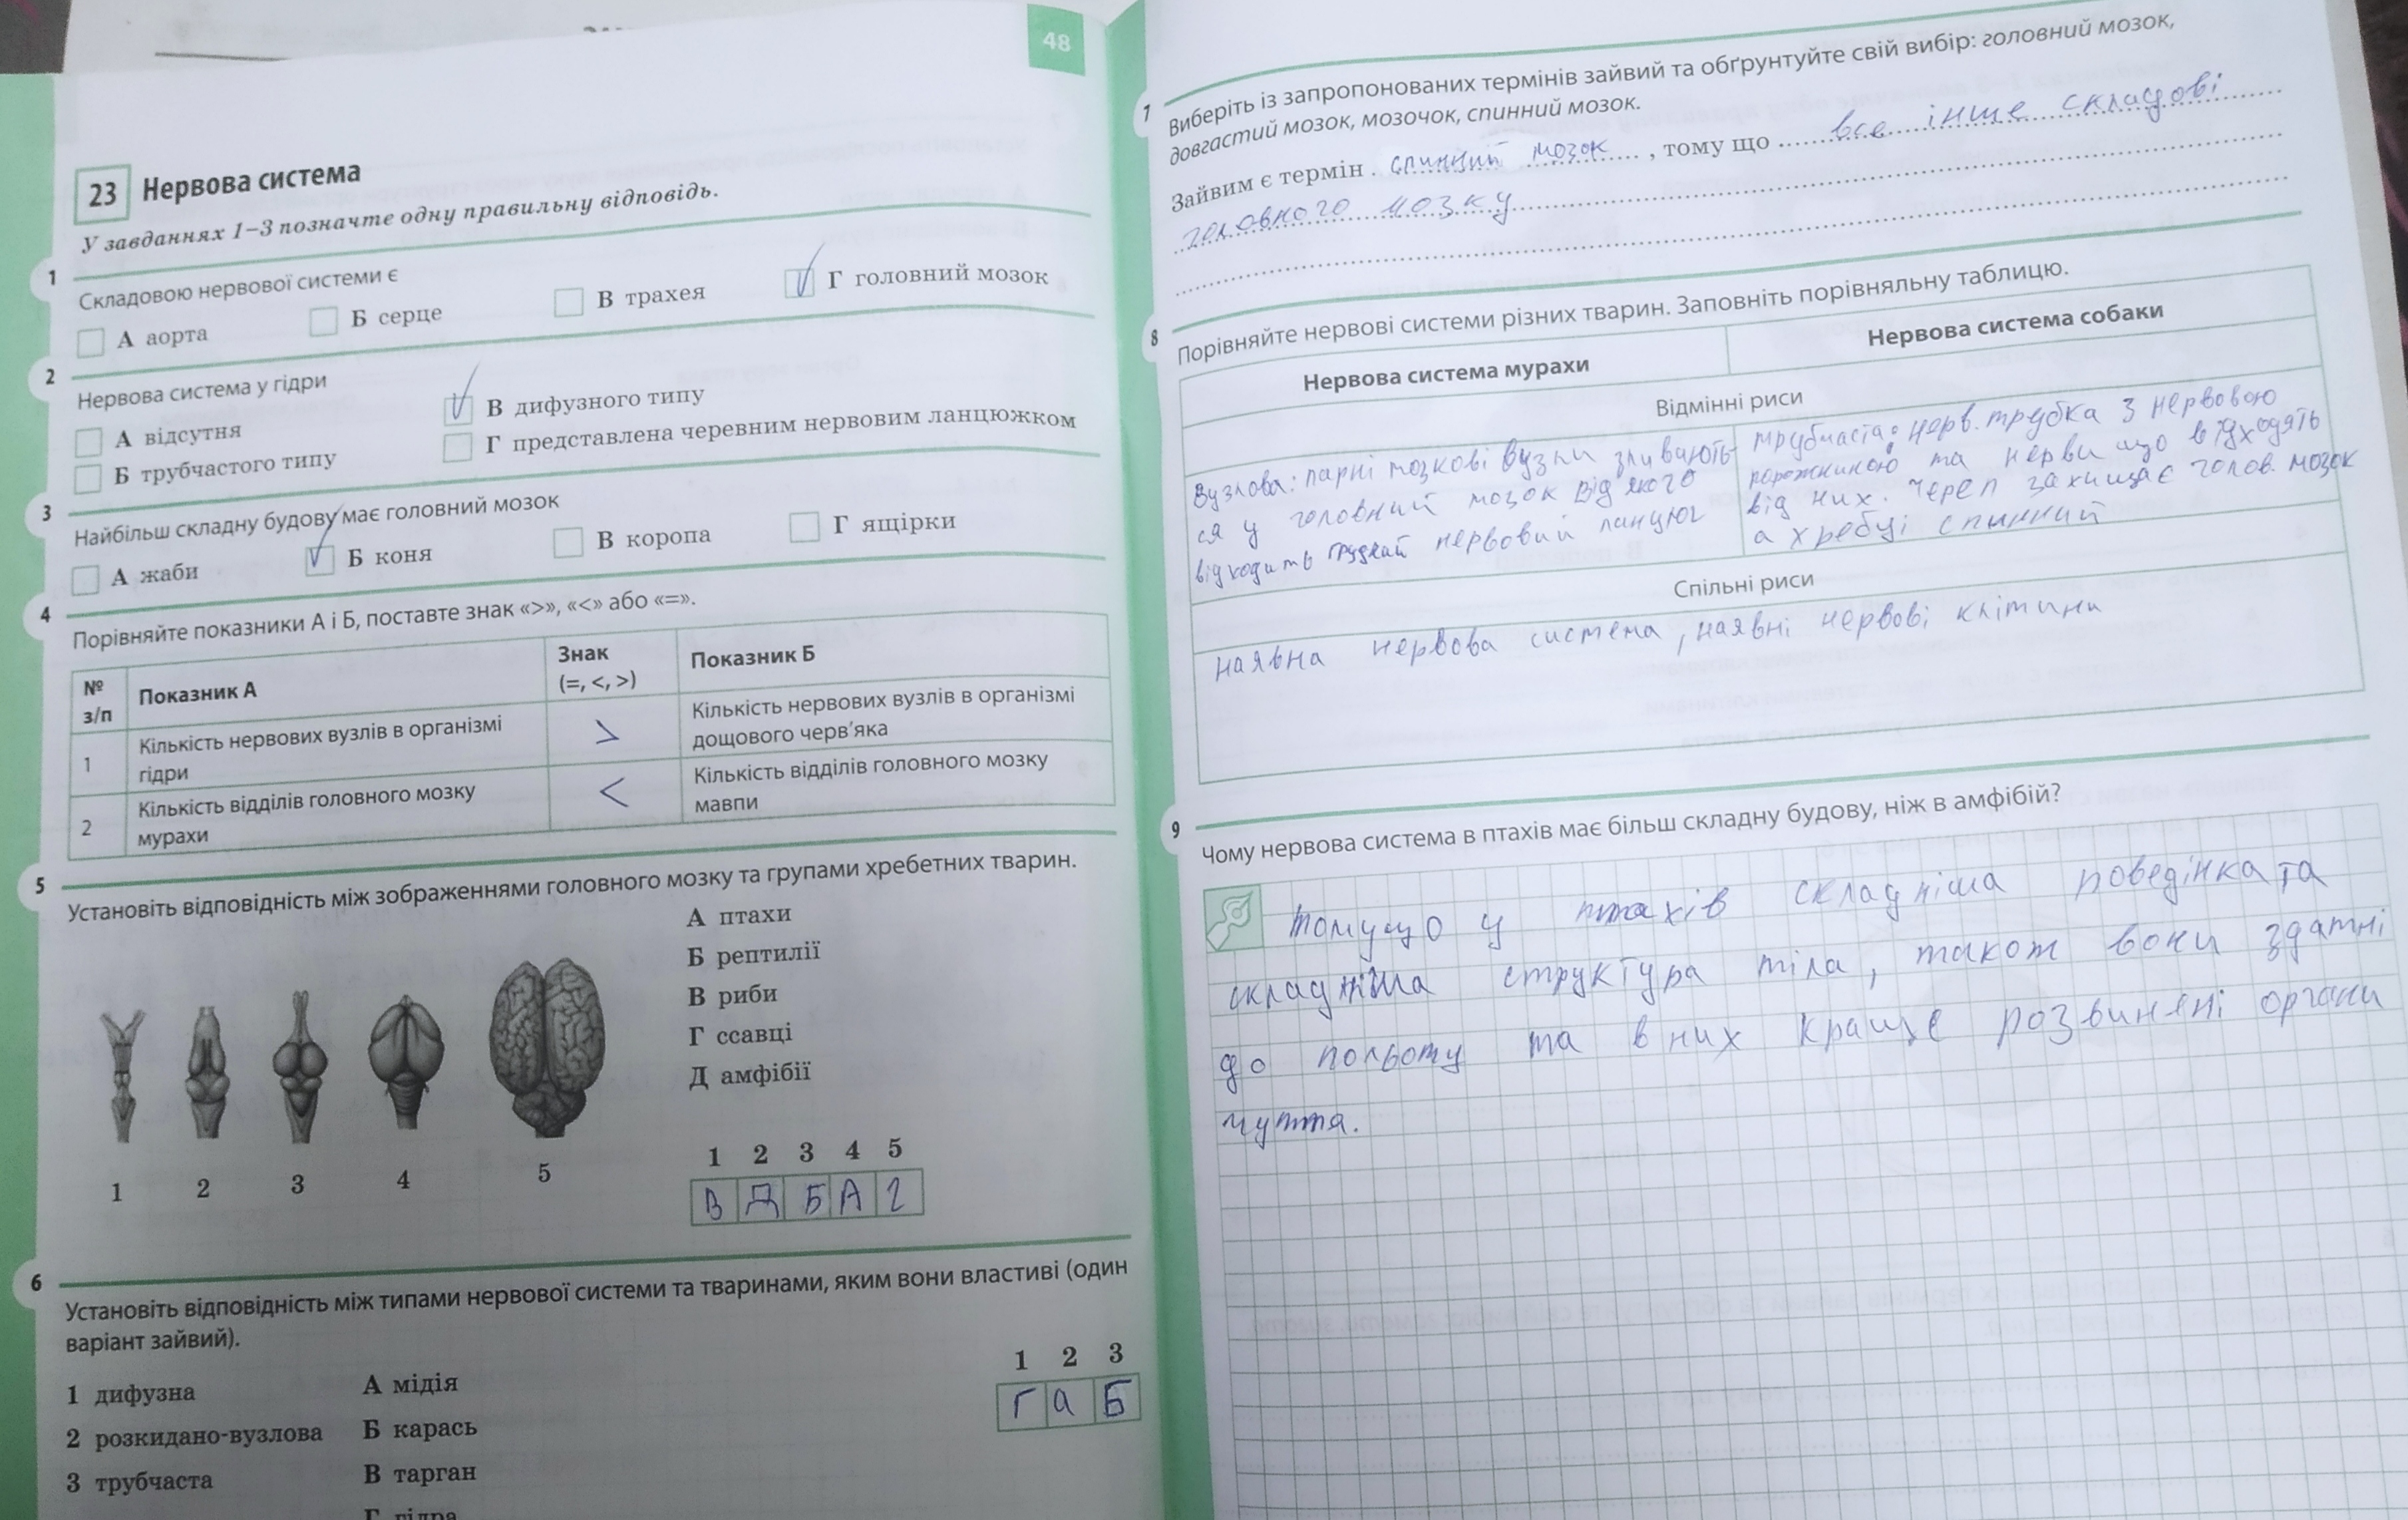 48
23 Нервова система
У завданнях 1–3 позначте одну правильну відповідь.
1
Складовою нервової системи є
А аорта
Б серце
В трахея
Г головний мозок
2
Нервова система у гідри
А відсутня
Б трубчастого типу
В дифузного типу
Г представлена черевним нервовим ланцюжком
3
Найбільш складну будову має головний мозок
А жаби
Б коня
В коропа
Г ящірки
4
Порівняйте показники А і Б, поставте знак «>», «<» або «=».
№ з/п
Показник А
Знак
(=, <, >)
Показник Б
1
Кількість нервових вузлів в організмі
гідри
>
Кількість нервових вузлів в організмі
дощового черв'яка
2
Кількість відділів головного мозку
мурахи
<
Кількість відділів головного мозку
мавпи
5
Установіть відповідність між зображеннями головного мозку та групами хребетних тварин.
А птахи
Б рептилії
В риби
Г ссавці
Д амфібії
1 2 3 4 5
1 2 3 4 5
В Д Б А Г
6
Установіть відповідність між типами нервової системи та тваринами, яким вони властиві (один
варіант зайвий).
1 дифузна
2 розкидано-вузлова
3 трубчаста
А мідія
Б карась
В тарган
Г гідра
1 2 3
Г а Б
7
Виберіть із запропонованих термінів зайвий та обґрунтуйте свій вибір: головний мозок,
довгастий мозок, мозочок, спинний мозок.
Зайвим є термін спинний мозок, тому що все інше складові
головного мозку
8
Порівняйте нервові системи різних тварин. Заповніть порівняльну таблицю.
Нервова система мурахи
Нервова система собаки
Відмінні риси
Вузлова: парні мозкові вузли зливають-
ся у головний мозок від якого
відходить грудний нервовий ланцюг
трубчаста: нерв. трубка з нервовою
порожниною та нерви що відходять
від них. Череп захищає голов. мозок
а хребці спинний
Спільні риси
наявна нервова система, наявні нервові клітини
9
Чому нервова система в птахів має більш складну будову, ніж в амфібій?
Тому що у птахів складніша поведінка та
складніша структура тіла, також вони здатні
до польоту та в них краще розвинені органи
чуття.